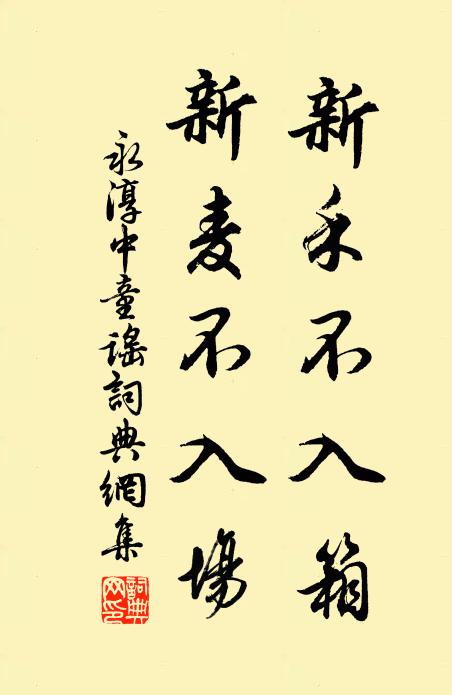 新禾不入箱
新麦不入場
永淳中童謠詞典網集
詞典网印